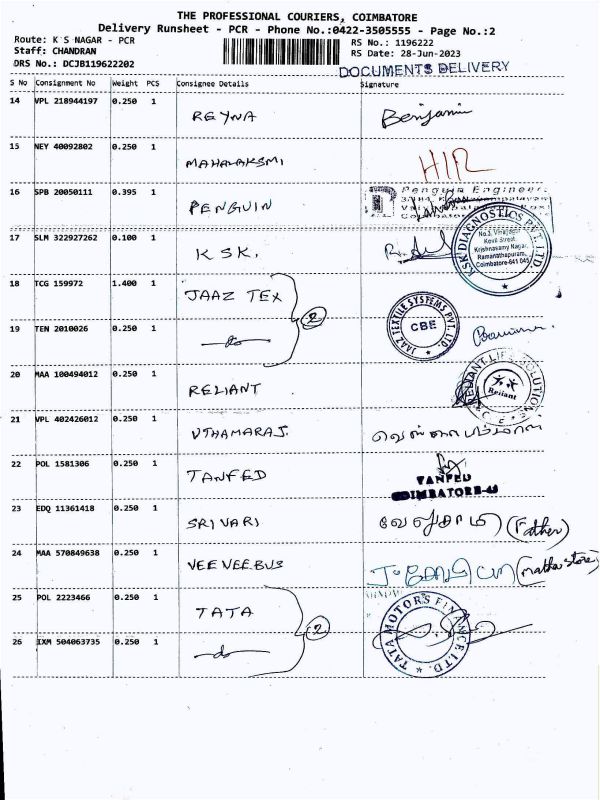 THE PROFESSIONAL COURIERS, COIMBATORE
Delivery Runsheet - PCR - Phone No.:0422-3505555 - Page No.:2
Route: K S NAGAR - PCR
RS No.: 1196222
Staff: CHANDRAN
RS Date: 28-Jun-2023
DRS No.: DCJB119622202
DOCUMENTS DELIVERY
S No Consignment No Weight PCS Consignee Details Signature
14 VPL 218944197 0.250 1 REYNA Benjamin
15 NEY 40092802 0.250 1 MAHALAKSMI
16 SPB 20050111 0.395 1 PENGUIN Penguin Engineer
17 SLM 322927262 0.100 1 KSK.
KSK DIAGNOSTICS PVT. LTD.
No.3, Vinayagar
Kovil Street
Krishnasamy Nagar,
Ramanathapuram,
Coimbatore-641 045
18 TCG 159972 1.400 1 JAAZ TEX 2
JAAZ TEXTILE SYSTEMS PVT. LTD.
CBE
19 TEN 2010026 0.250 1 -do-
20 MAA 100494012 0.250 1 RELIANT
RELIANT LIFE SOLUTIONS
Reliant
21 VPL 402426012 0.250 1 UTHAMARAJ.
22 POL 1581306 0.250 1 TANFED
TANFED
COIMBATORE-45
23 EDQ 11361418 0.250 1 SRIVARI (Father)
24 MAA 570849638 0.250 1 VEEVEEBUS (matha store)
25 POL 2223466 0.250 1 TATA 2
TATA MOTORS FINANCE LTD.
26 IXM 504063735 0.250 1 -do-